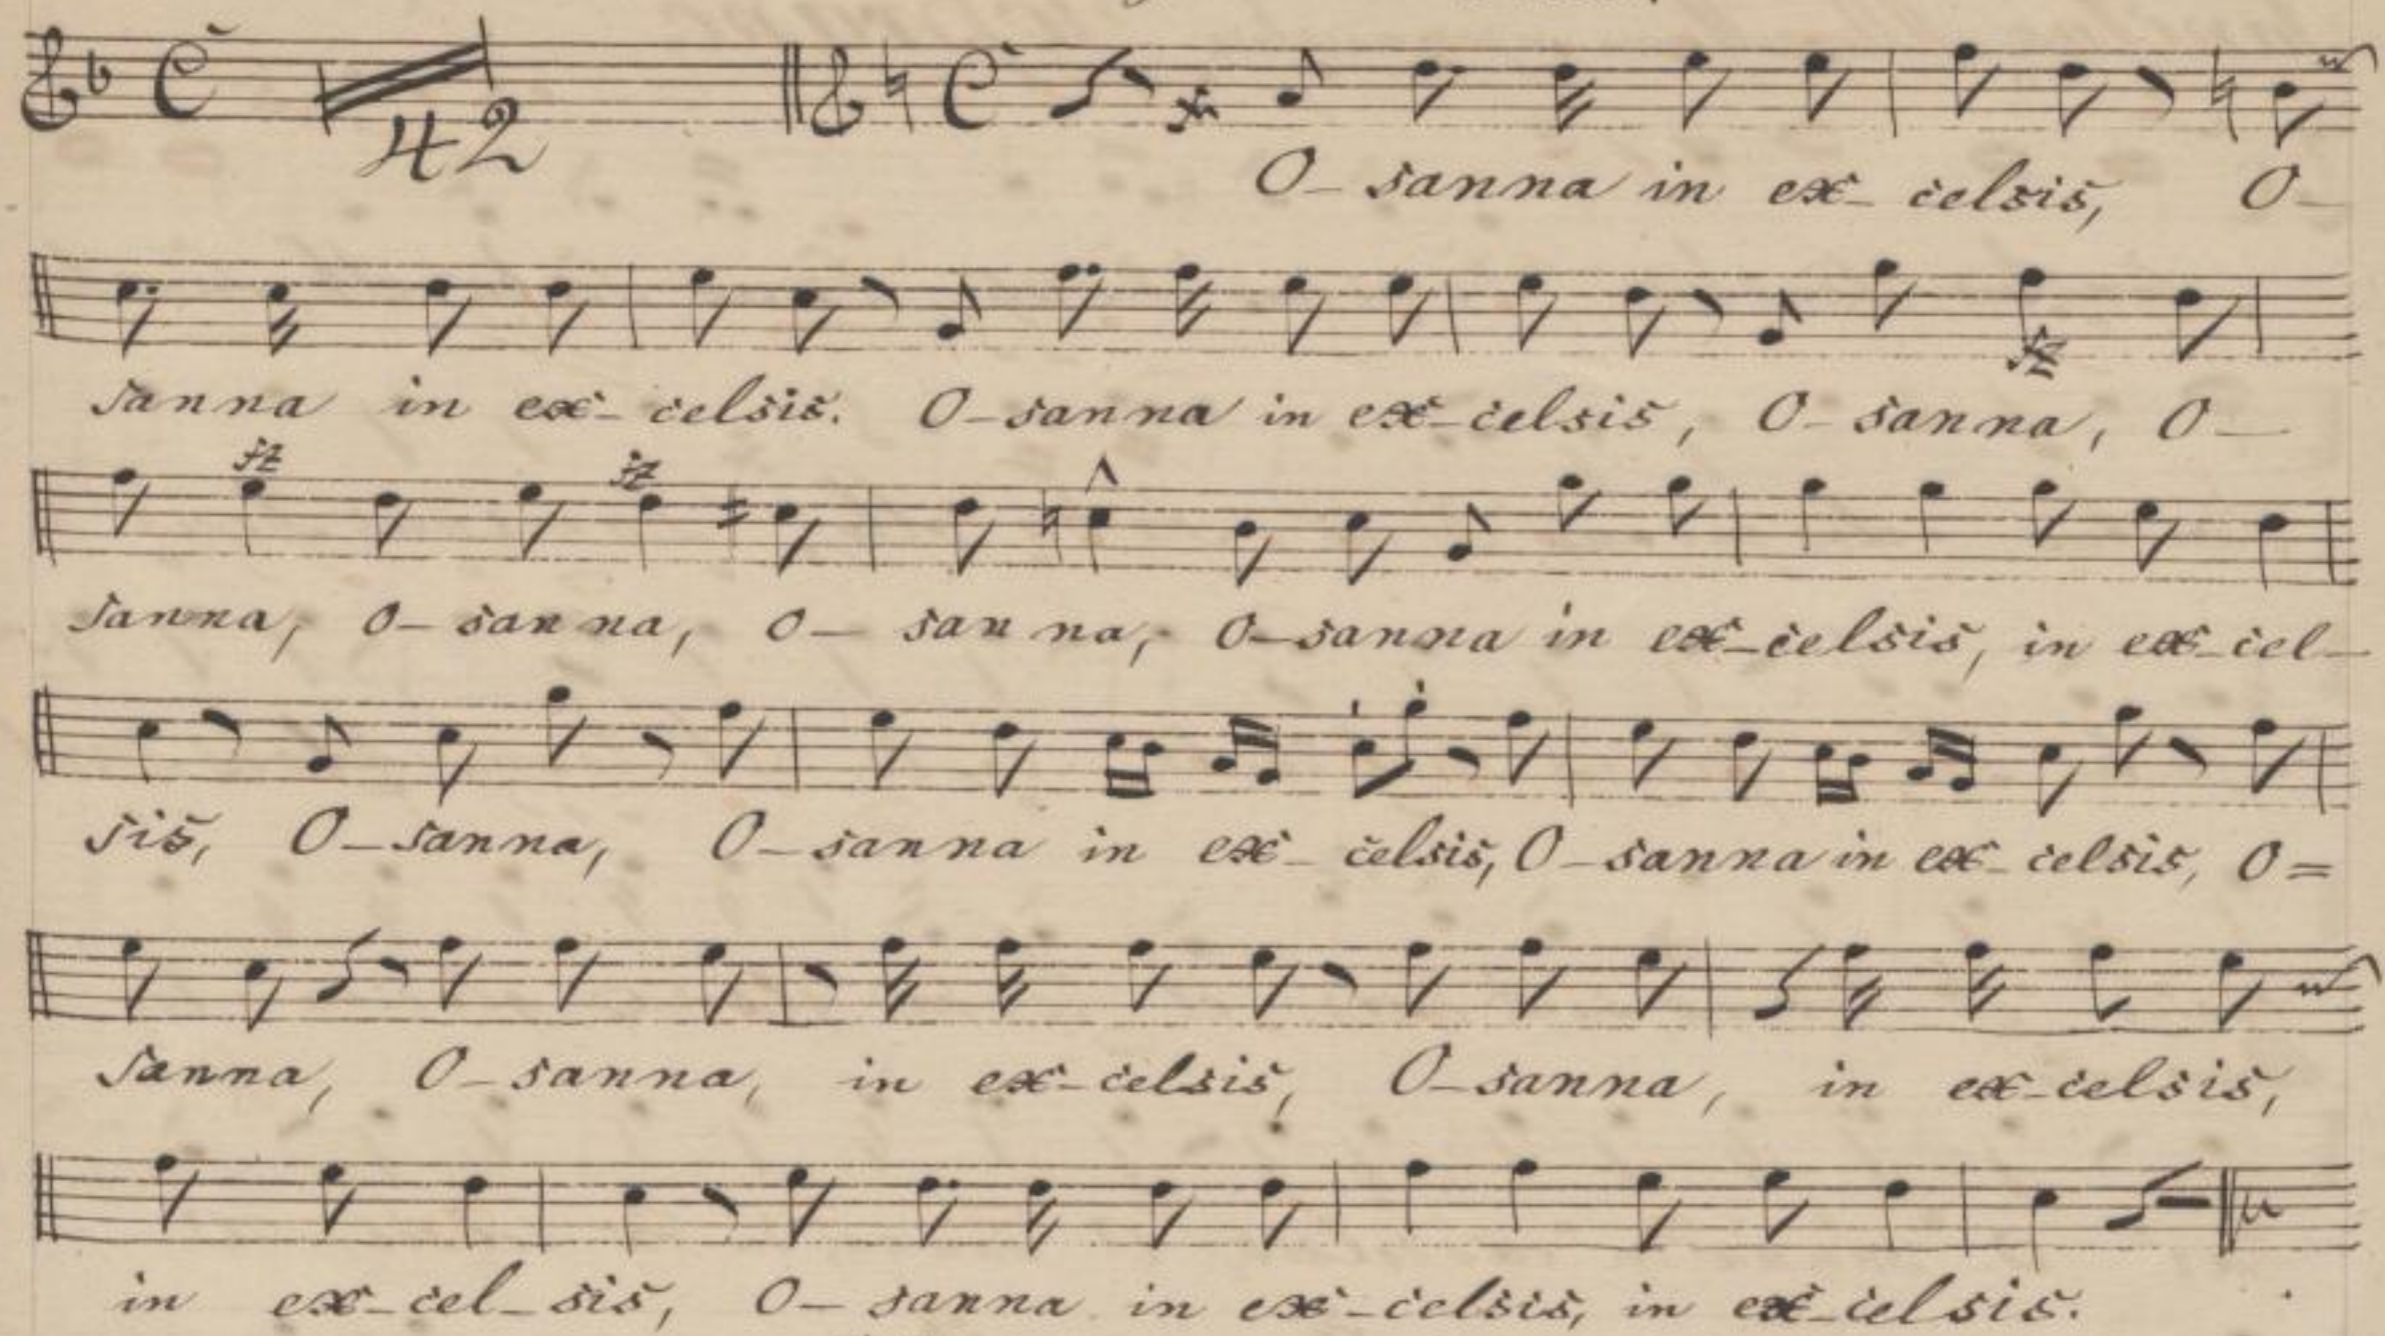 42
O-sanna in ex-celsis, O-
sanna in ex-celsis. O-sanna in ex-celsis, O-sanna, O-
fz
fz fz
sanna, o-sanna, o-sanna, o-sanna in ex-celsis, in ex-cel-
sis, O-sanna, O-sanna in ex-celsis, O-sanna in ex-celsis, O=
sanna, O-sanna, in ex-celsis, O-sanna, in ex-celsis,
in ex-cel-sis, O-sanna in ex-celsis, in ex-celsis.